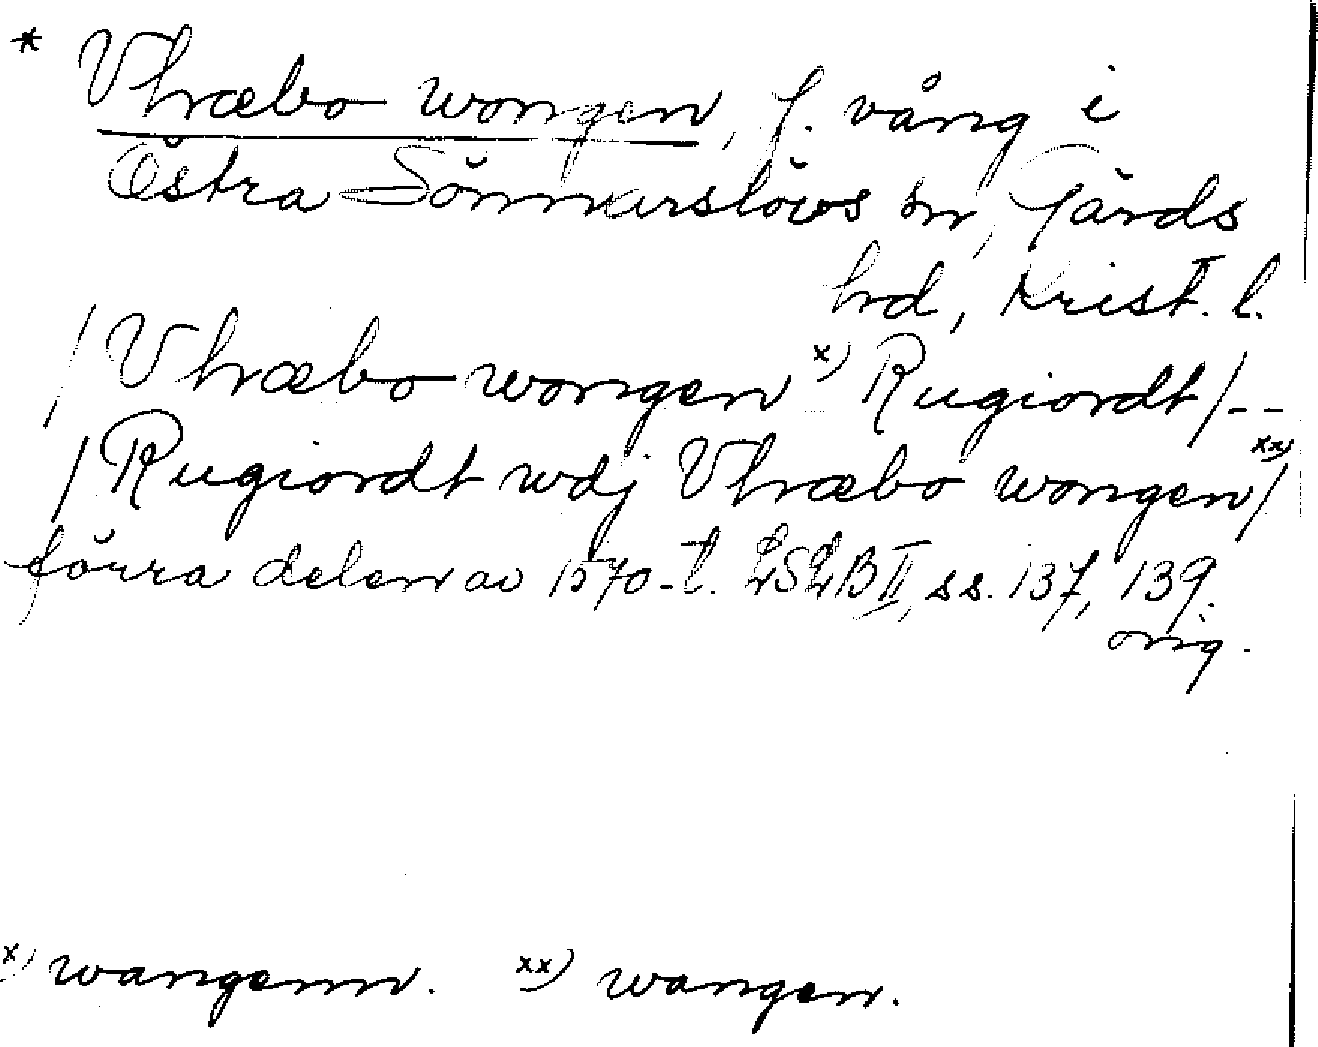 * Vhræbo wongen, f. vång i
Östra Sönnarslövs sn, Gärds
hd, Krist. l.
/Vhræbo wongen x) Rugiordt/--
/Rugiordt wdj Vhræbo wongen/ xx)
förra delen av 1570-t. LSLB II, ss. 137, 139.
orig.
x) wangenn. xx) wangen.